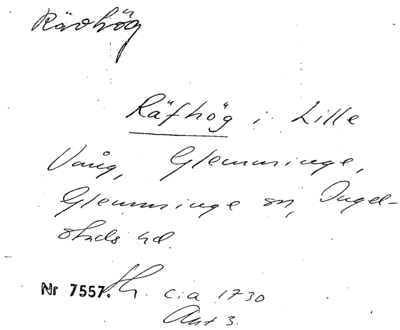 Rävhög
Räfhög i Lille
Vång, Glemminge,
Glemminge sn, Ingel-
stads hd.
Nr 7557. c:a 1730
Ant 3.